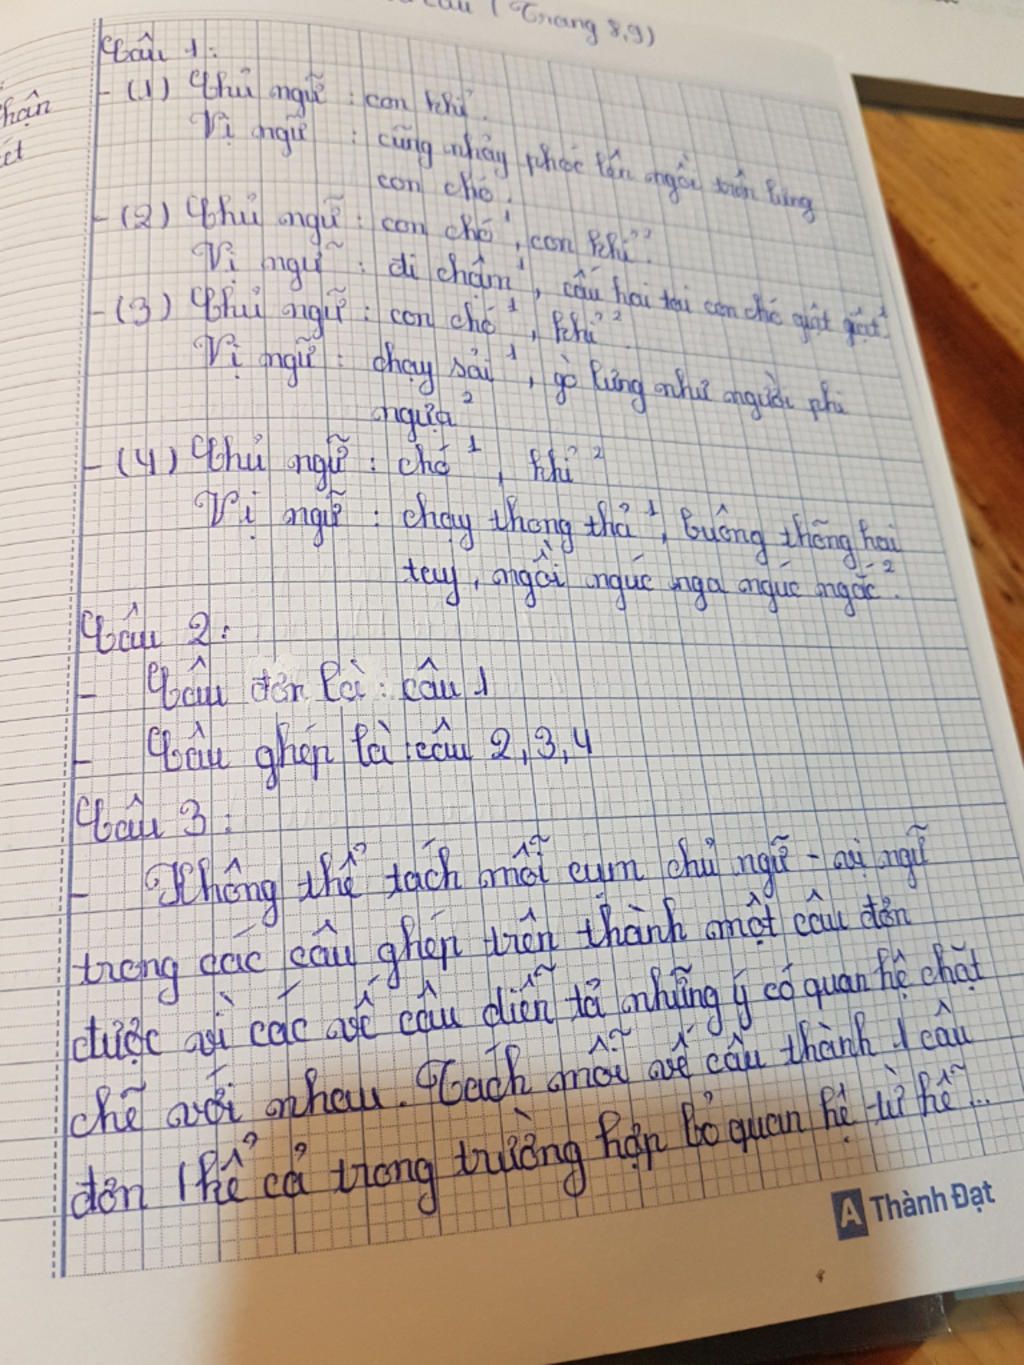 câu (Trang 8,9)
hận
ét
Câu 1:
- (1) Chủ ngữ : con khỉ.
Vị ngữ : cũng nhảy phóc lên ngồi trên lưng
con chó.
- (2) Chủ ngữ : con chó¹, con khỉ².
Vị ngữ : đi chậm¹, cấu hai tai con chó giật giật²
- (3) Chủ ngữ : con chó¹, khỉ².
Vị ngữ : chạy sải¹, gò lưng như người phi
ngựa²
- (4) Chủ ngữ : chó¹, khỉ²
Vị ngữ : chạy thong thả¹, buông thõng hai
tay, ngồi ngúc nga ngúc ngắc².
Câu 2:
- Câu đơn là : câu 1
- Câu ghép là : câu 2, 3, 4
Câu 3:
- Không thể tách mỗi cụm chủ ngữ - vị ngữ
trong các câu ghép trên thành một câu đơn
được vì các vế câu diễn tả những ý có quan hệ chặt
chẽ với nhau. Tách mỗi vế câu thành 1 câu
đơn (kể cả trong trường hợp bỏ quan hệ từ hễ...
A Thành Đạt